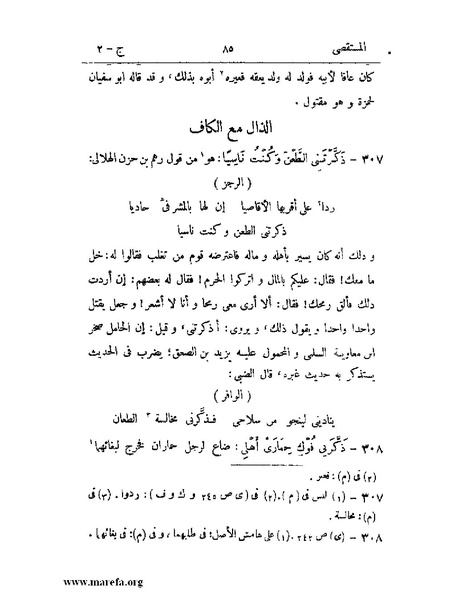 المستقصى ٨٥ ج - ٢
كان عاقا لأبيه فولد له ولد يعقه فعيره ٢ أبوه بذلك، و قد قاله ابو سفيان
لحمزة و هو مقتول .
الذال مع الكاف
٣٠٧ - ذَكَّرْتَنِي الطَّعْنَ وَكُنْتُ نَاسِيًا: هو ١ من قول رهم بن حزن الهلالى:
( الرجز )
ردا ٢ على أقربها الأقاصيا إن لها بالمشرفىّ حاديا
ذكرتنى الطعن وكنت ناسيا
و ذلك أنه كان يسير بأهله و ماله فاعترضه قوم من تغلب فقالوا له: خل
ما معك! فقال: عليكم بالمال و اتركوا الحرم! فقال له بعضهم: إن أردت
ذلك فألق رمحك! فقال: ألا أرى معى رمحا و أنا لا أشعر! و جعل يقتل
واحدا واحدا و يقول ذلك، و يروى: أذكرتنى، و قيل: إن الحامل صخر
ابن معاوية السلمى و المحمول عليه يزيد بن الصعق؛ يضرب فى الحديث
يستذكر به حديث غيره، قال الضبى:
( الوافر )
ينادينى لينجو من سلاحى فذكّرنى مخالسة ٣ الطعان
٣٠٨ - ذَكَّرَنِي فُوكِ حِمَارَىْ أَهْلِي: ضاع لرجل حماران فخرج لبغائهما ١
(٢) فى (م): فعير .
٣٠٧ - (١) ليس فى (م) .(٢) فى (ى ص ٢٤٥ و ك و ف): ردوا . (٣) فى
(م): مخالسة .
٣٠٨ - (ى) ص ٢٤٢ .(١) على هامش الأصل: فى طلبهما ، و فى (م): فى بغائهما .
www.marefa.org